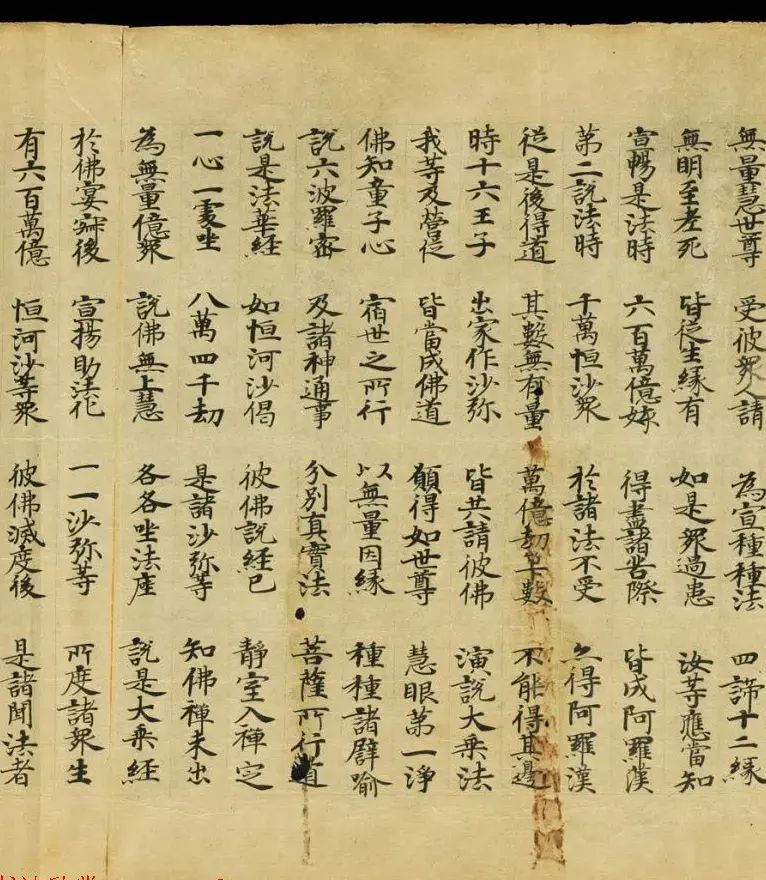 無量慧世尊 受彼衆人請 為宣種種法 四諦十二縁
無明至老死 皆從生縁有 如是衆過患 汝等應當知
宣暢是法時 六百萬億姟 得盡諸苦際 皆成阿羅漢
第二說法時 千萬恒沙衆 於諸法不受 亦得阿羅漢
從是後得道 其數無有量 萬億劫筭數 不能得其邊
時十六王子 出家作沙弥 皆共請彼佛 演說大乘法
我等及營從 皆當成佛道 願得如世尊 慧眼第一淨
佛知童子心 宿世之所行 以無量因緣 種種諸譬喻
說六波羅蜜 及諸神通事 分別真實法 菩薩所行道
說是法華經 如恒河沙偈 彼佛說經已 靜室入禪定
一心一處坐 八萬四千劫 是諸沙弥等 知佛禪未出
為無量億衆 說佛無上慧 各各坐法座 說是大乘經
於佛宴寂後 宣揚助法化 一一沙弥等 所度諸衆生
有六百萬億 恒河沙等衆 彼佛滅度後 是諸聞法者